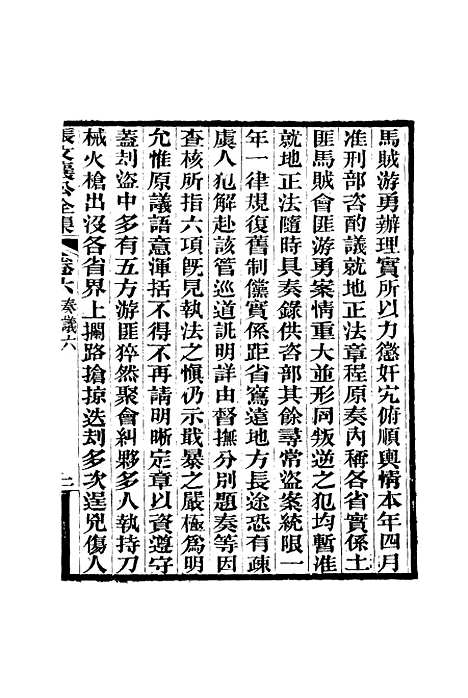 馬賊游勇辦理實所以力懲奸宄俯順輿情本年四月
准刑部咨酌議就地正法章程原奏內稱各省實係土
匪馬賊會匪游勇案情重大並形同叛逆之犯均暫准
就地正法隨時具奏錄供咨部其餘尋常盜案統限一
年一律規復舊制儻實係距省窵遠地方長途恐有疎
虞人犯解赴該管巡道訊明詳由督撫分別題奏等因
查核所指六項旣見執法之愼仍示戢暴之嚴極爲明
允惟原議語意渾括不得不再請明晰定章以資遵守
蓋刦盜中多有五方游匪猝然聚會糾夥多人執持刀
械火槍出沒各省界上攔路搶掠迭刦多次逞兇傷人
張文襄公全集
卷六
奏議六
二